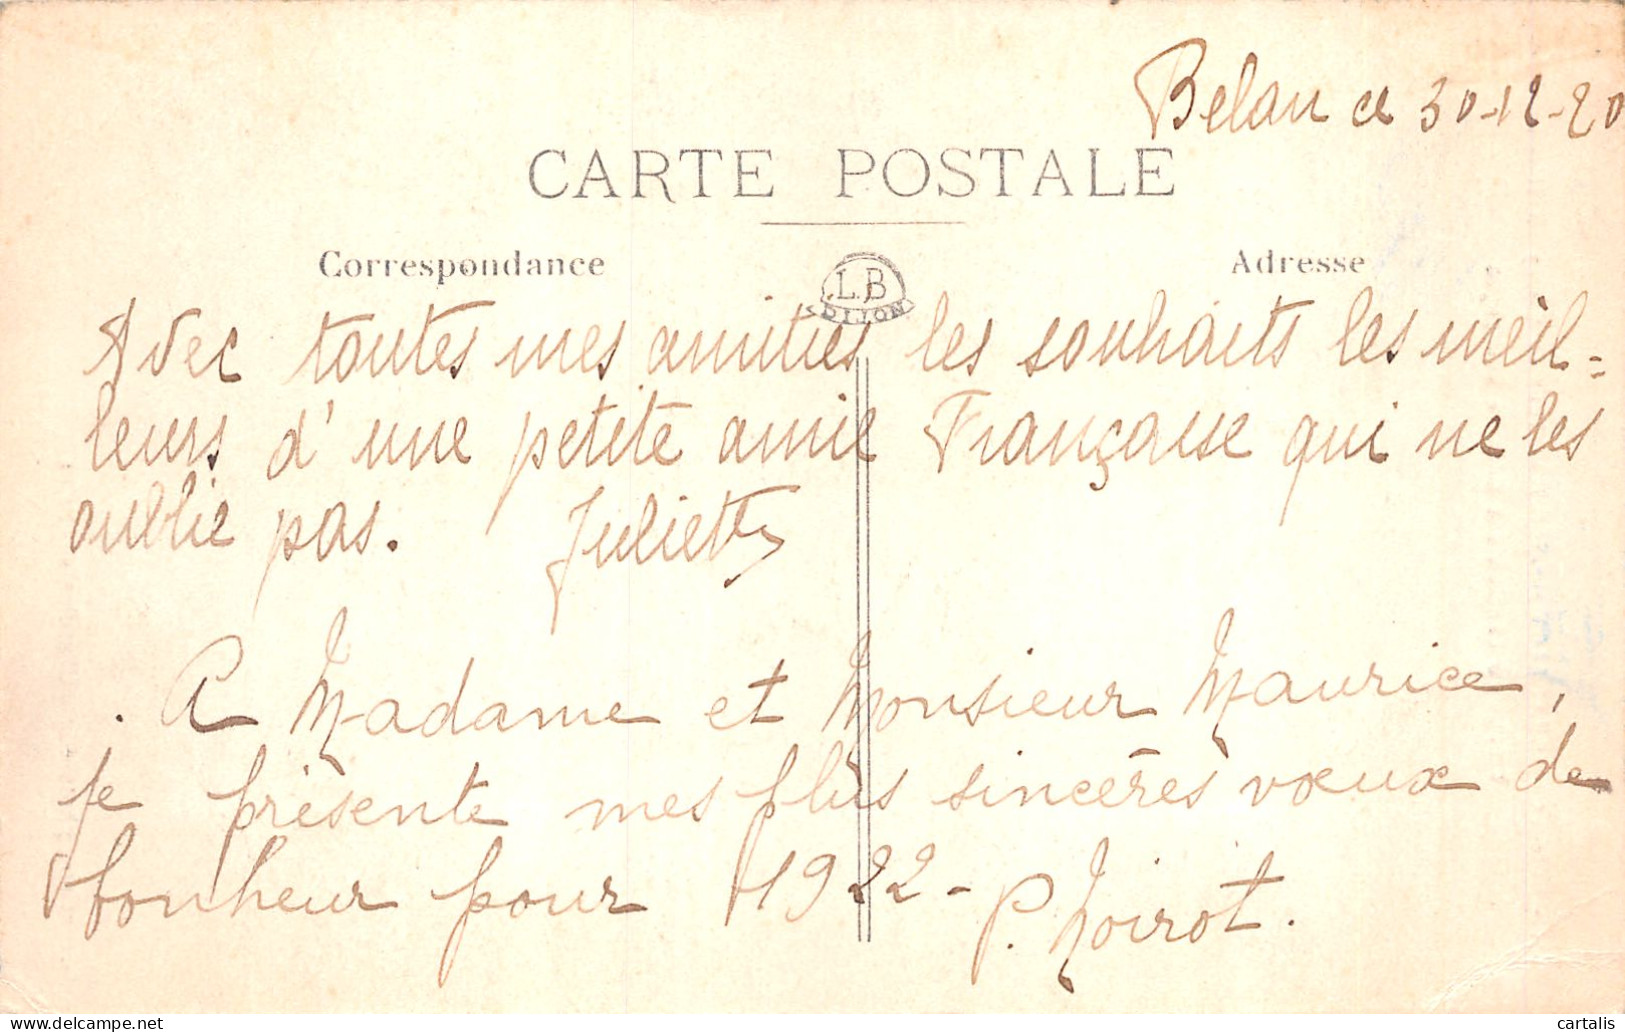 Belan ce 30-12-20
CARTE POSTALE
Correspondance
Adresse
L.B
DIJON
Avec toutes mes amitiés les souhaits les meil-
leurs d'une petite amie Française qui ne les
oublie pas. Juliette
. A Madame et Monsieur Maurice,
je présente mes plus sincères vœux de
bonheur pour 1922 - P. Noirot.
delcampe.net
cartalis